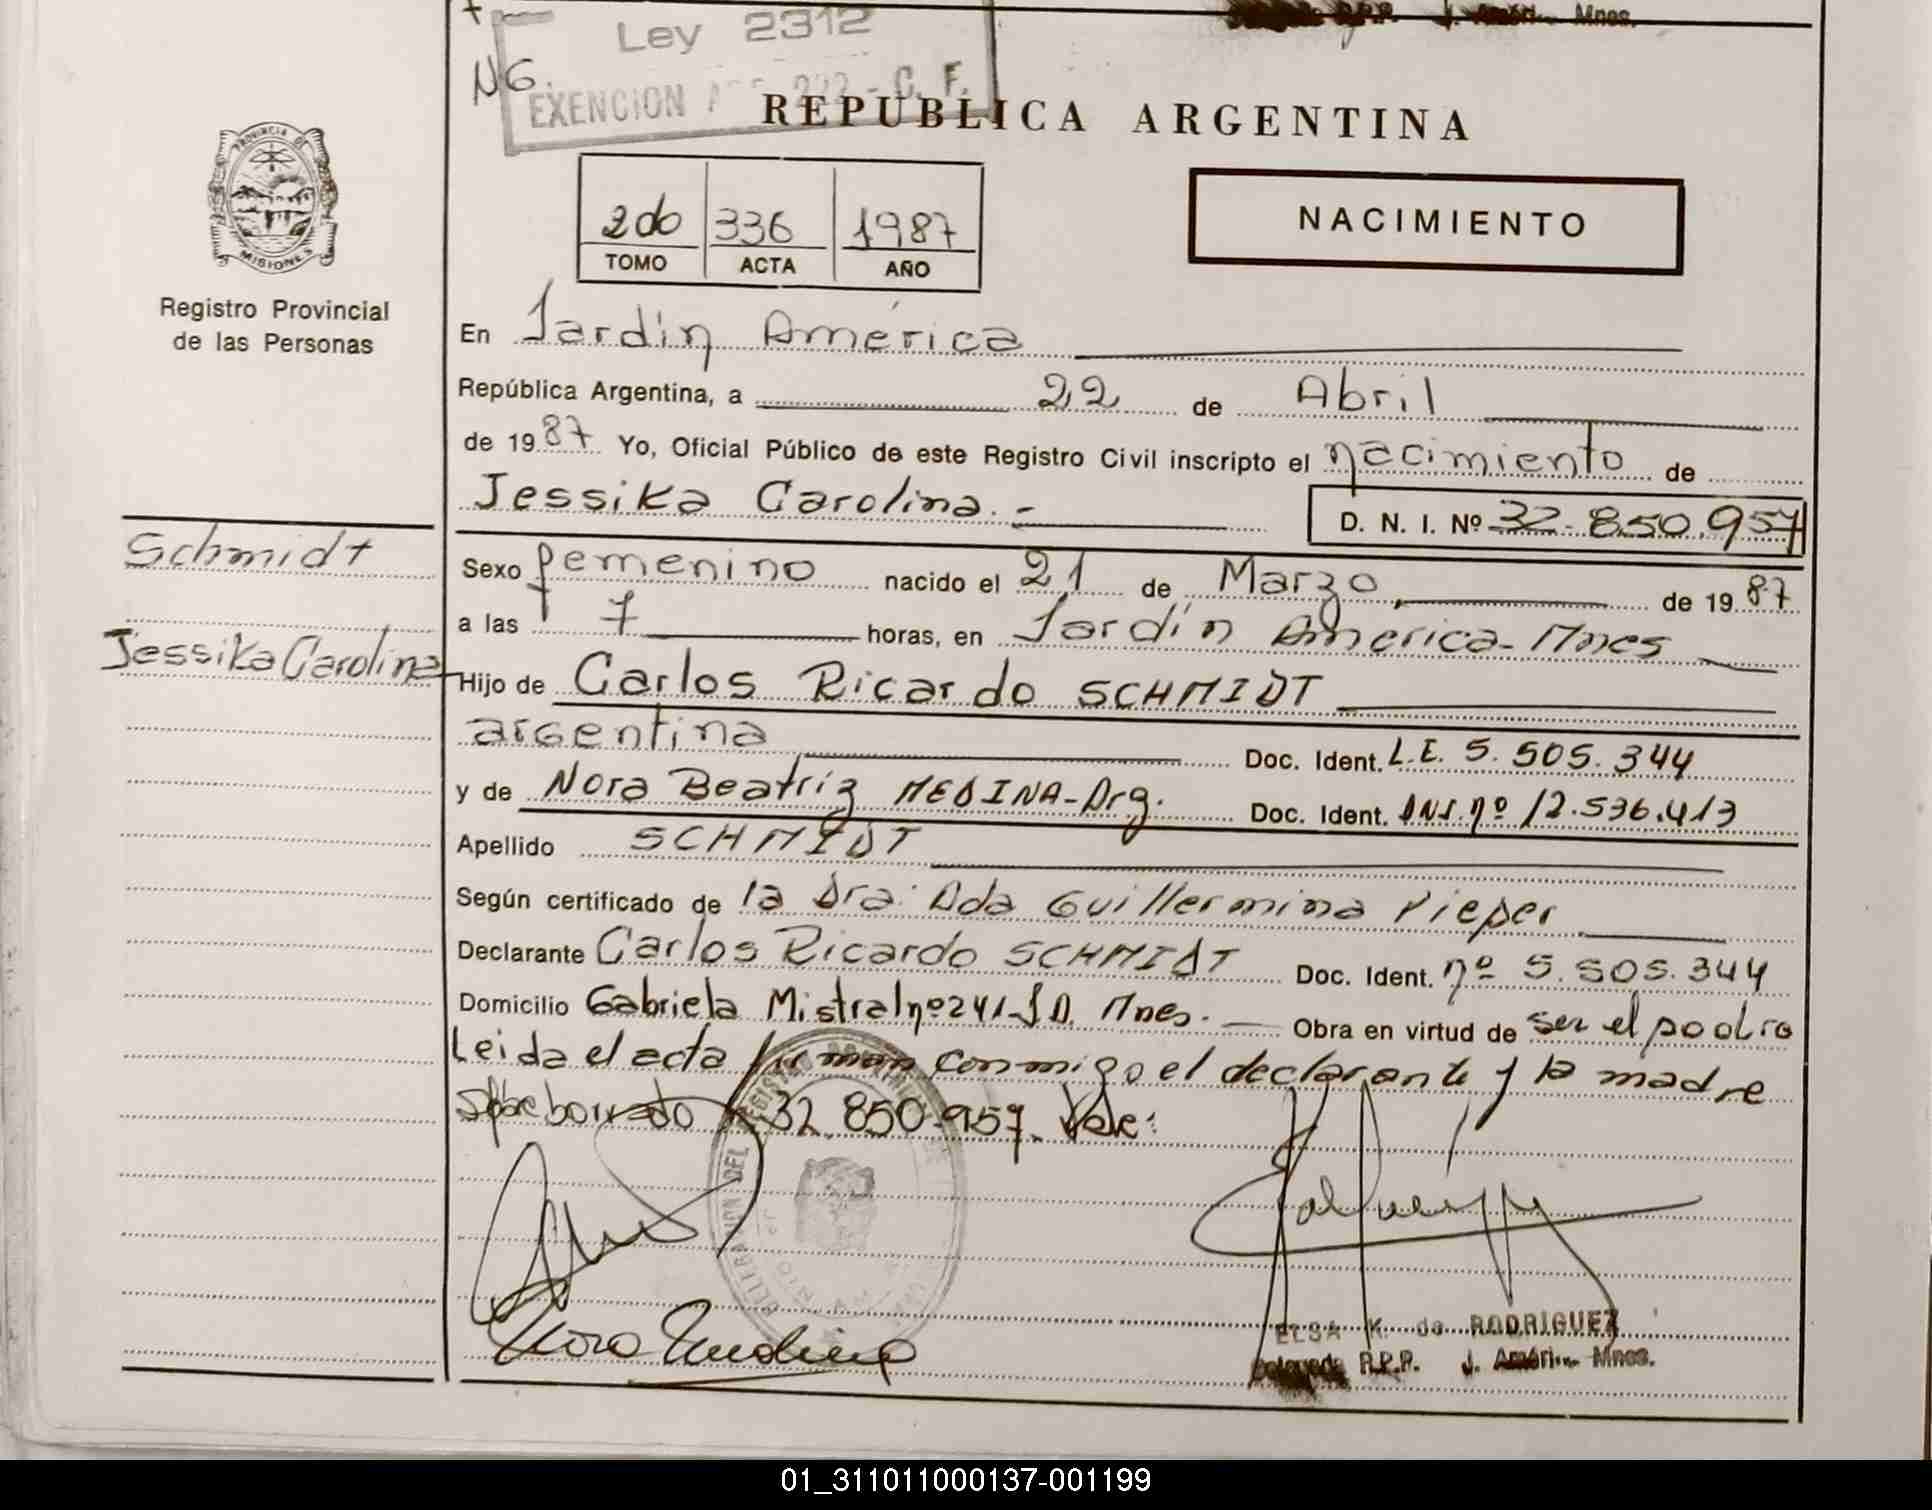 Ley 2312
NG.
EXENCION
J. Améri.. Mnes.
REPUBLICA ARGENTINA
PROVINCIA DE
MISIONES
Registro Provincial
de las Personas
2do 336 1987
TOMO ACTA AÑO
NACIMIENTO
En Jardín América
República Argentina, a 22 de Abril
de 1987 Yo, Oficial Público de este Registro Civil inscripto el nacimiento de
Jessika Carolina.- D. N. I. Nº 32.850.957
Schmidt
Jessika Carolina
Sexo femenino nacido el 21 de Marzo de 1987
a las 7 horas, en Jardín America-Mnes
Hijo de Carlos Ricardo SCHMIDT
argentina Doc. Ident. L.E. 5.505.344
y de Nora Beatriz MEDINA-Arg. Doc. Ident. DNI.nº 12.536.413
Apellido SCHMIDT
Según certificado de la Dra. Ada Guillermina Pieper
Declarante Carlos Ricardo SCHMIDT Doc. Ident. nº 5.505.344
Domicilio Gabriela Mistral nº241-J A. Mnes. Obra en virtud de ser el padre
Leida el acta firman conmigo el declarante y la madre
Sobre borrado 32.850.957. Vale:
Nora Medina
ELSA K. de RODRIGUEZ
Delegada R.P.P. J. Améri.. Mnes.
01_311011000137-001199